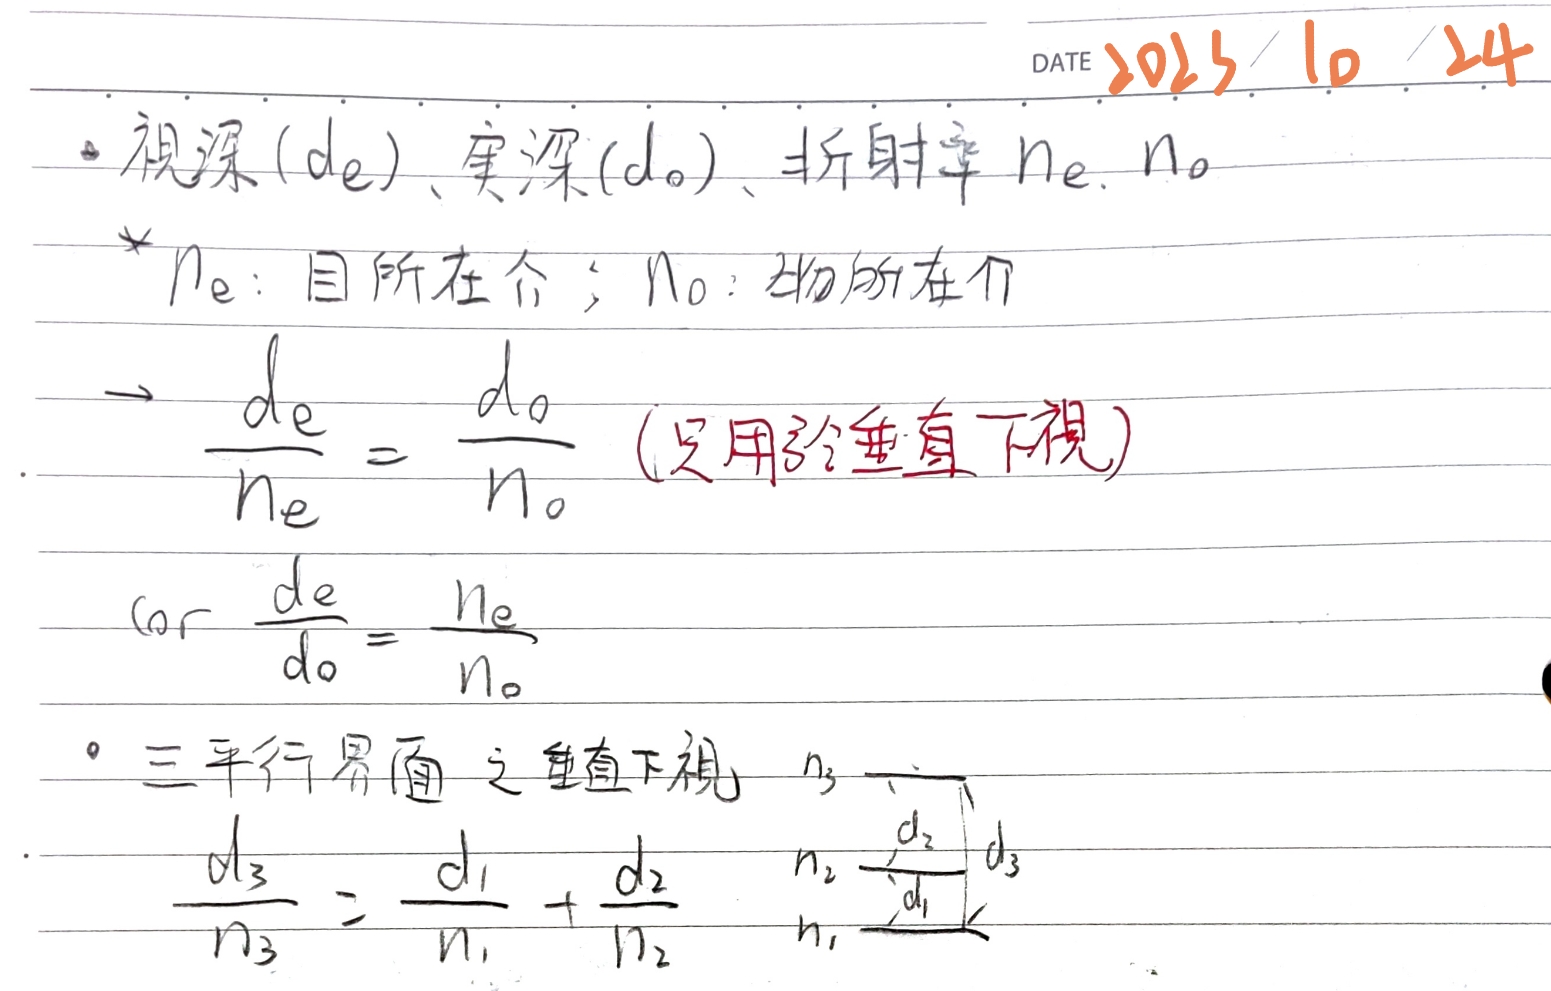 DATE 2025/10/24
• 視深(de)、実深(do)、折射率 ne. no
* ne: 目所在介; no: 物所在介
→ de/ne = do/no (只用於垂直下視)
cor de/do = ne/no
• 三平行界面之垂直下視
d3/n3 = d1/n1 + d2/n2
n3
d2
n2
d3
d1
n1